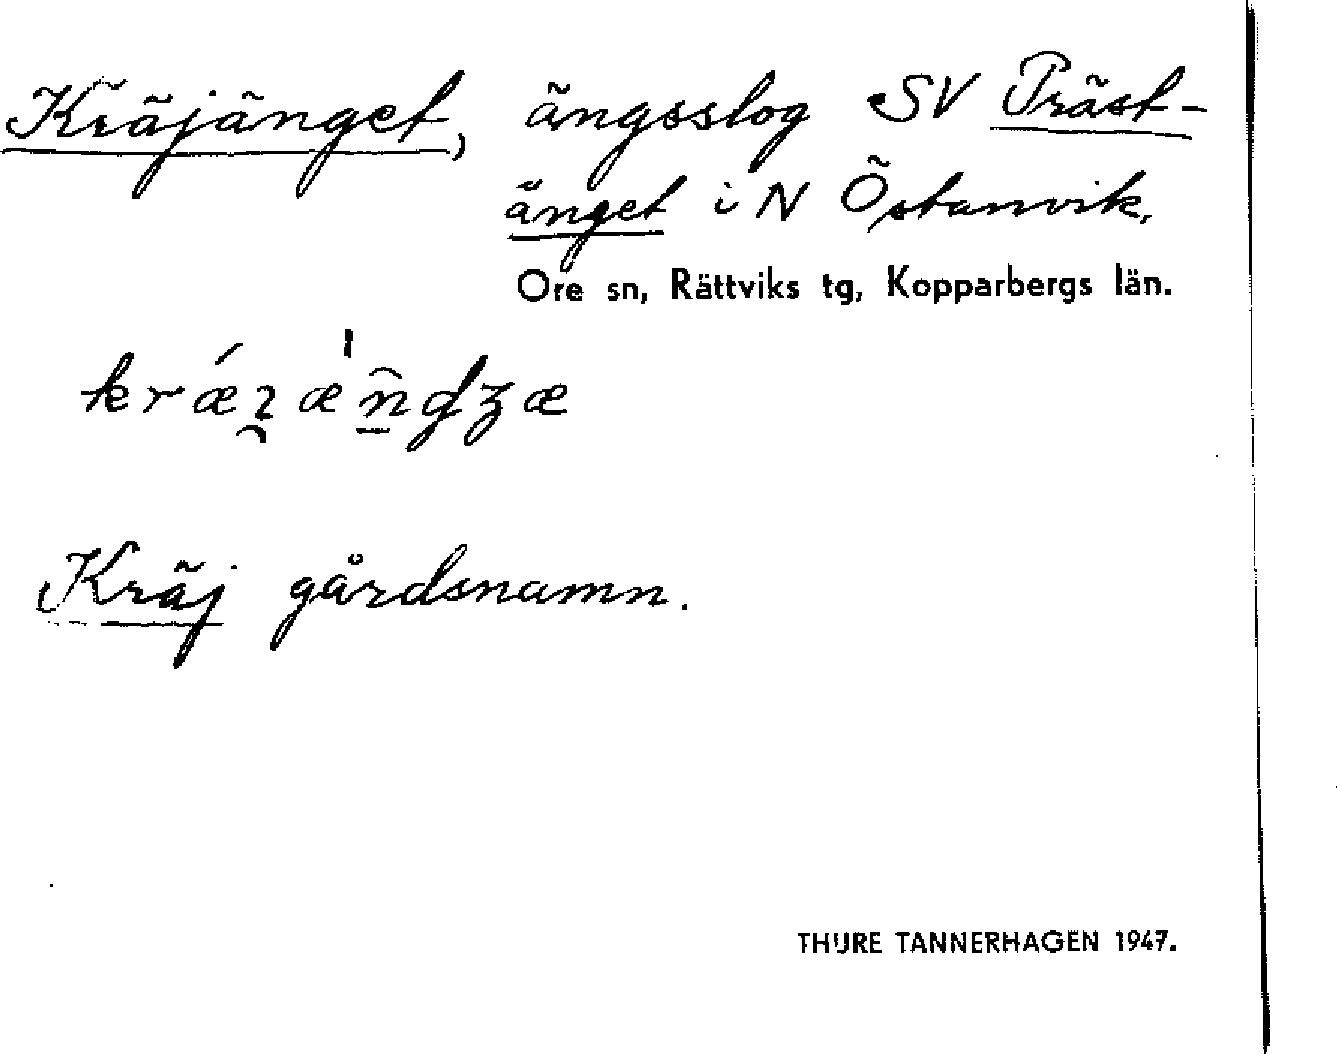 Kräjänget, ängsslog SV Präst-
änget i N Östanvik,
Ore sn, Rättviks tg, Kopparbergs län.
Kräj gårdsnamn.
THURE TANNERHAGEN 1947.